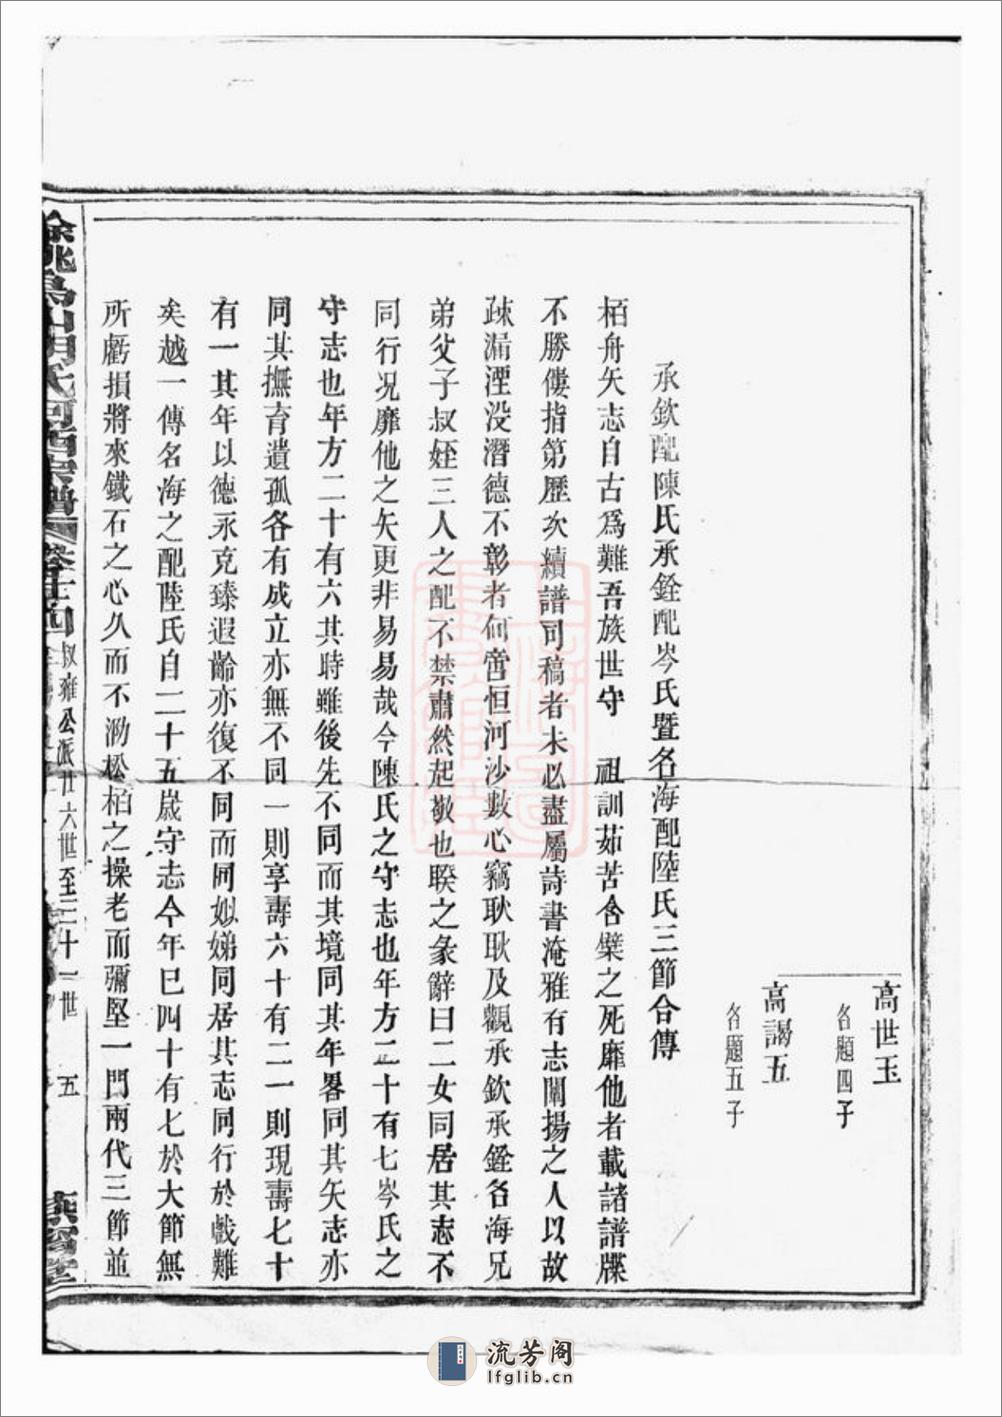 高世玉
名題四子
高謁五
名題五子
承欽配陳氏承銓配岑氏暨名海配陸氏三節合傳
栢舟矢志自古為難吾族世守　祖訓茹苦含櫱之死靡他者載諸譜牒
不勝僂指第歷次續譜司稿者未必盡屬詩書淹雅有志闡揚之人以故
疎漏湮没潛德不彰者何啻恒河沙數心竊耿耿及觀承欽承銓名海兄
弟父子叔姪三人之配不禁肅然起敬也睽之彖辭曰二女同居其志不
同行况靡他之矢更非易易哉今陳氏之守志也年方二十有七岑氏之
守志也年方二十有六其時雖後先不同而其境同其年畧同其矢志亦
同其撫育遺孤各有成立亦無不同一則享壽六十有二一則現壽七十
有一其年以德永克臻遐齡亦復不同而同姒娣同居其志同行於戲難
矣越一傳名海之配陸氏自二十五歲守志今年巳四十有七於大節無
所虧損將來鐵石之心久而不泐松柏之操老而彌堅一門兩代三節並
餘姚烏山胡氏河西宗譜
卷十四
叔雍公派廿六世至三十一世
五